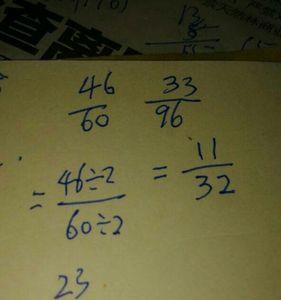 46/60 33/96
= 46÷2/60÷2 = 11/32
23